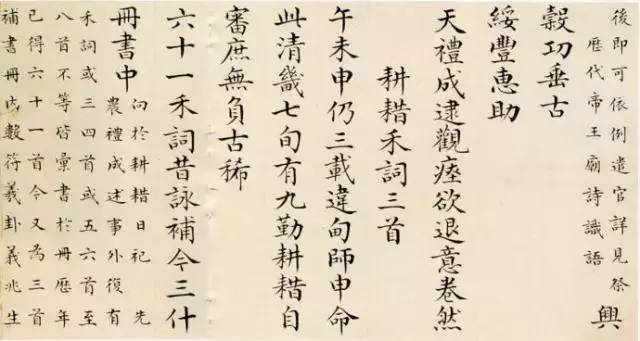 後即可依例遣官詳見祭
歷代帝王廟詩識語
興
穀功垂古
綏豐惠助
天禮成逮觀瘞欲退意卷然
耕耤禾詞三首
午未申仍三載違甸師申命
此清畿七旬有九勤耕耤自
審庶無負古稀
六十一禾詞昔詠補今三什
冊書中
向於耕耤日祀先
農禮成述事外復有
禾詞或三四首或五六首至
八首不等皆彙書於冊歷年
已得六十一首今又為三首
補書冊內數符羲卦義兆生